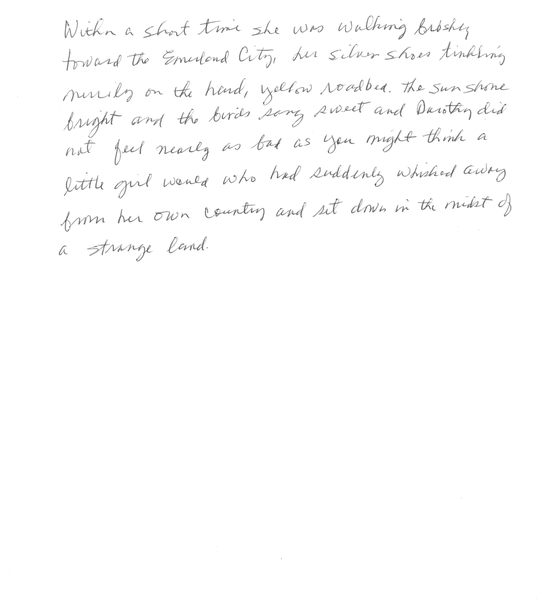 Within a short time she was walking briskly
toward the Emerland City, her silver shoes tinkling
merrily on the hard, yellow roadbed. The sun shone
bright and the birds sang sweet and Dorothy did
not feel nearly as bad as you might think a
little girl would who had suddenly whisked away
from her own country and set down in the midst of
a strange land.